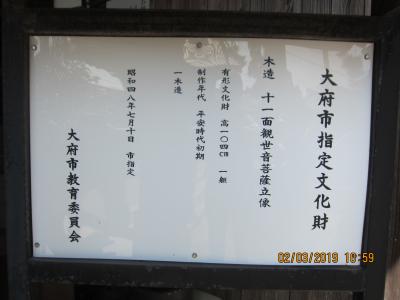 大府市指定文化財
木造 十一面観世音菩薩立像
有形文化財 高一〇四cm 一躯
制作年代 平安時代初期
一木造
昭和四八年七月十日 市指定
大府市教育委員会
02/03/2019 10:59